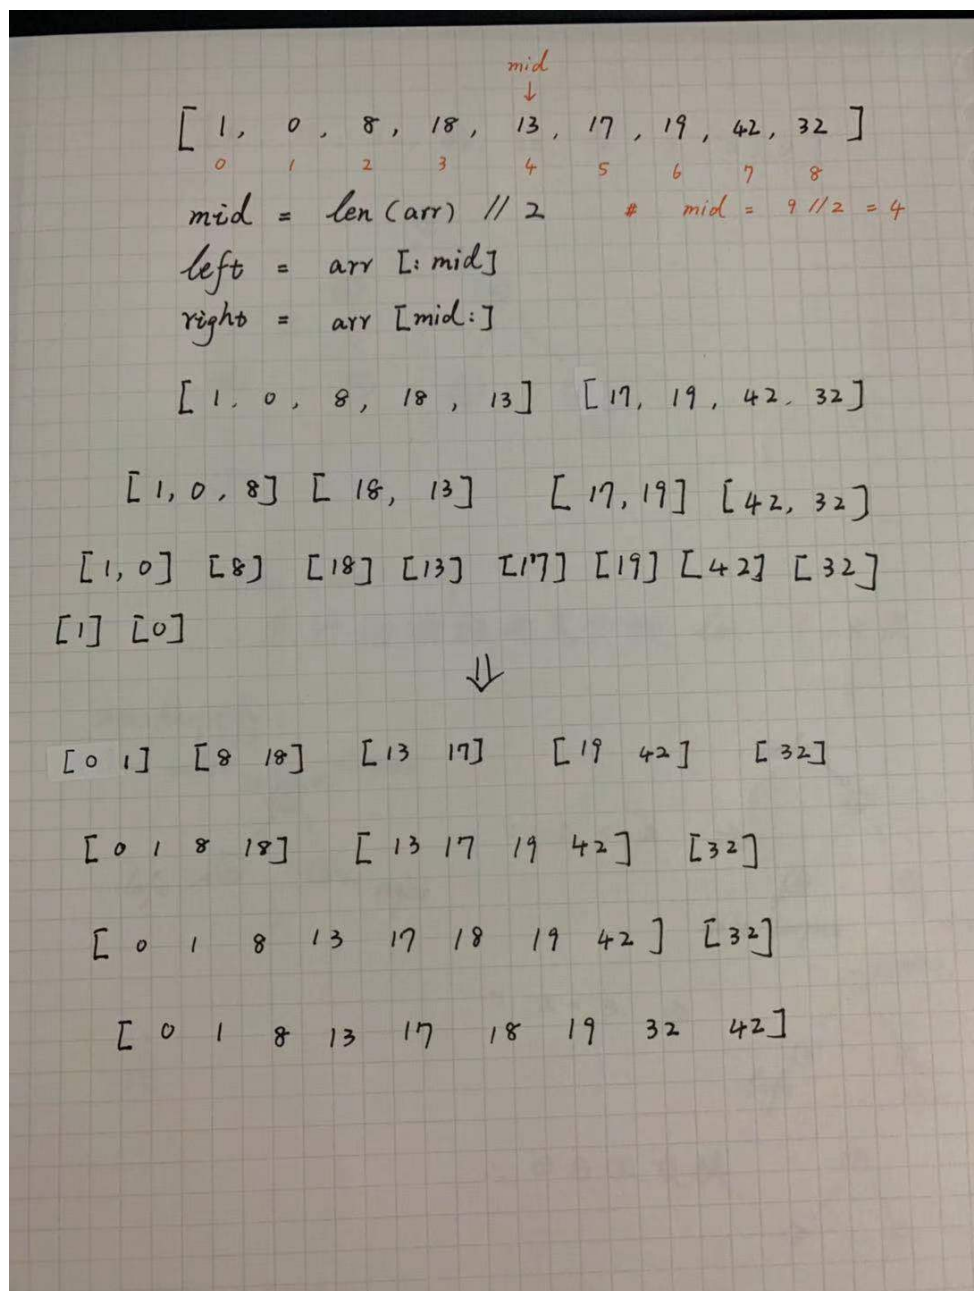 mid
↓
[ 1, 0, 8, 18, 13, 17, 19, 42, 32 ]
0 1 2 3 4 5 6 7 8
mid = len (arr) // 2 # mid = 9 // 2 = 4
left = arr [: mid]
right = arr [mid:]
[ 1. 0, 8, 18, 13] [17, 19, 42. 32]
[1, 0, 8] [ 18, 13] [ 17, 19] [42, 32]
[1, 0] [8] [18] [13] [17] [19] [42] [32]
[1] [0]
⇓
[0 1] [8 18] [13 17] [19 42] [32]
[0 1 8 18] [13 17 19 42] [32]
[ 0 1 8 13 17 18 19 42 ] [32]
[ 0 1 8 13 17 18 19 32 42]